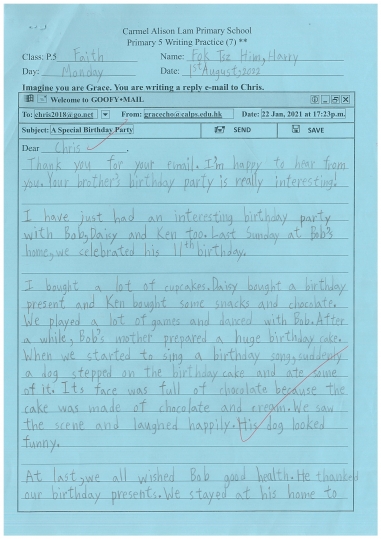 Carmel Alison Lam Primary School
Primary 5 Writing Practice (7) **
Class: P.5 Faith Name: Fok Tsz Him, Harry
Day: Monday Date: 1st August, 2002
Imagine you are Grace. You are writing a reply e-mail to Chris.
Welcome to GOOFY•MAIL
To: chris2018@go.net From: gracecho@calps.edu.hk Date: 22 Jan, 2021 at 17:23p.m.
Subject: A Special Birthday Party SEND SAVE
Dear Chris,
Thank you for your email. I'm happy to hear from
you. Your brother's birthday party is really interesting!
I have just had an interesting birthday party
with Bob, Daisy and Ken too. Last Sunday at Bob's
home, we celebrated his 11th birthday.
I bought a lot of cupcakes. Daisy bought a birthday
present and Ken bought some snacks and chocolate.
We played a lot of games and danced with Bob. After
a while, Bob's mother prepared a huge birthday cake.
When we started to sing a birthday song, suddenly
a dog stepped on the birthday cake and ate some
of it. Its face was full of chocolate because the
cake was made of chocolate and cream. We saw
the scene and laughed happily. His dog looked
funny.
At last, we all wished Bob good health. He thanked
our birthday presents. We stayed at his home to